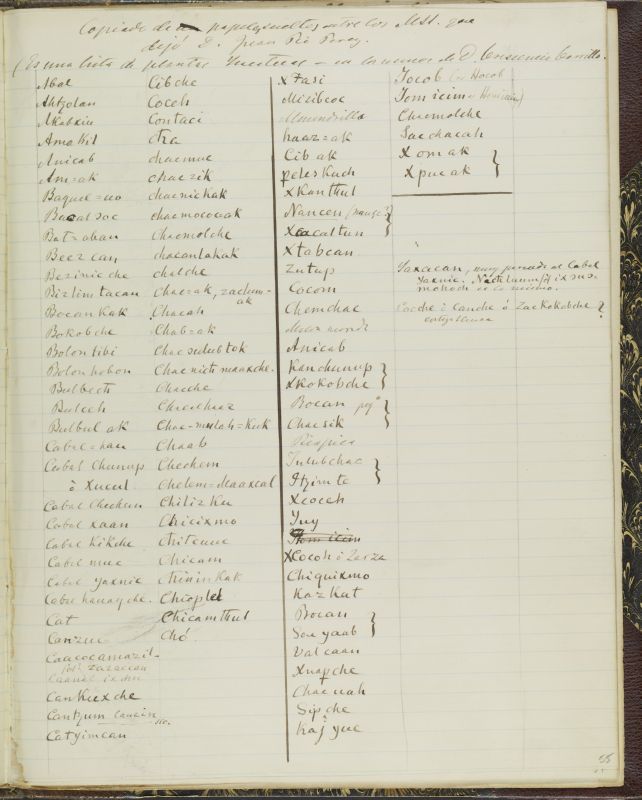 Copiado de papeles sueltos entre los MSS. que
dejó D. Juan Pio Perez.
(Es una lista de plantas Yucatecas - en manos de D. Crescencio Carrillo.
Abal
Ahtzolan
Akabxiu
Ama Kil
Anicab
Am=ak
Baquel=ac
Bacal soc
Bat=aban
Beez can
Bezinic che
Bizlim tacan
Bocan Kak
Bokobche
Bolon tibi
Bolonhobon
Bulbech
Bulech
Bulbul ak
Cabal=hau
Cabal chunup
ò Xucul
Cabal Chechem
Cabal xaan
Cabal Kikche
Cabal muc
Cabal yaxnic
Cabal hauayche.
Cat
Canzuc
Caacocamazil
Can Kuxche
Cantzum
Catzimcan
Cibche
Coceh
Contaci
cha
chacmuc
chac zik
chacnickak
chacmocouak
Chacmolche
chacanlakak
chalche
Chaczak, zaclum-
ak
Chacah
Chab=ak
Chacsububtok
Chacnich maaxche.
Chacche
Chacchaac
Chac-mulah=Kuk
Chaab
Chechem
Chelem=Maaxcal
Chilizku
Chicixmo
Chiteuuc
Chicam
Chinin Kak
Chiople
Chicamthul
Chó
X Tasi
Mizibcoc
Almendrillo
haaz=ak
Cib ak
peles Kuch
X Kanthul
Nancen
Xacaltun
Xtabcan
Zutup
Cocom
Chemchac
Anicab
Kanchunup
XKoKobche
Bocan
Chacsik
Picapica
Tulubchac
Itzimte
Xcoceh
Yuy
Tomicim
XCocoh ò Zarza
Chiquixmo
Kaz Kat
Bocan
Sacyaab
Xalcaan
Xnapche
Chacuah
Sipche
Kaj yuc
Tocob (ò Hocob)
Tomicim
Chacmolche
Sacchacah
X omak
X pucak
Yaxacan, muy parecido al Cabal
Yaxnic.
Cocche ò Canche ò ZacKoKabche
55